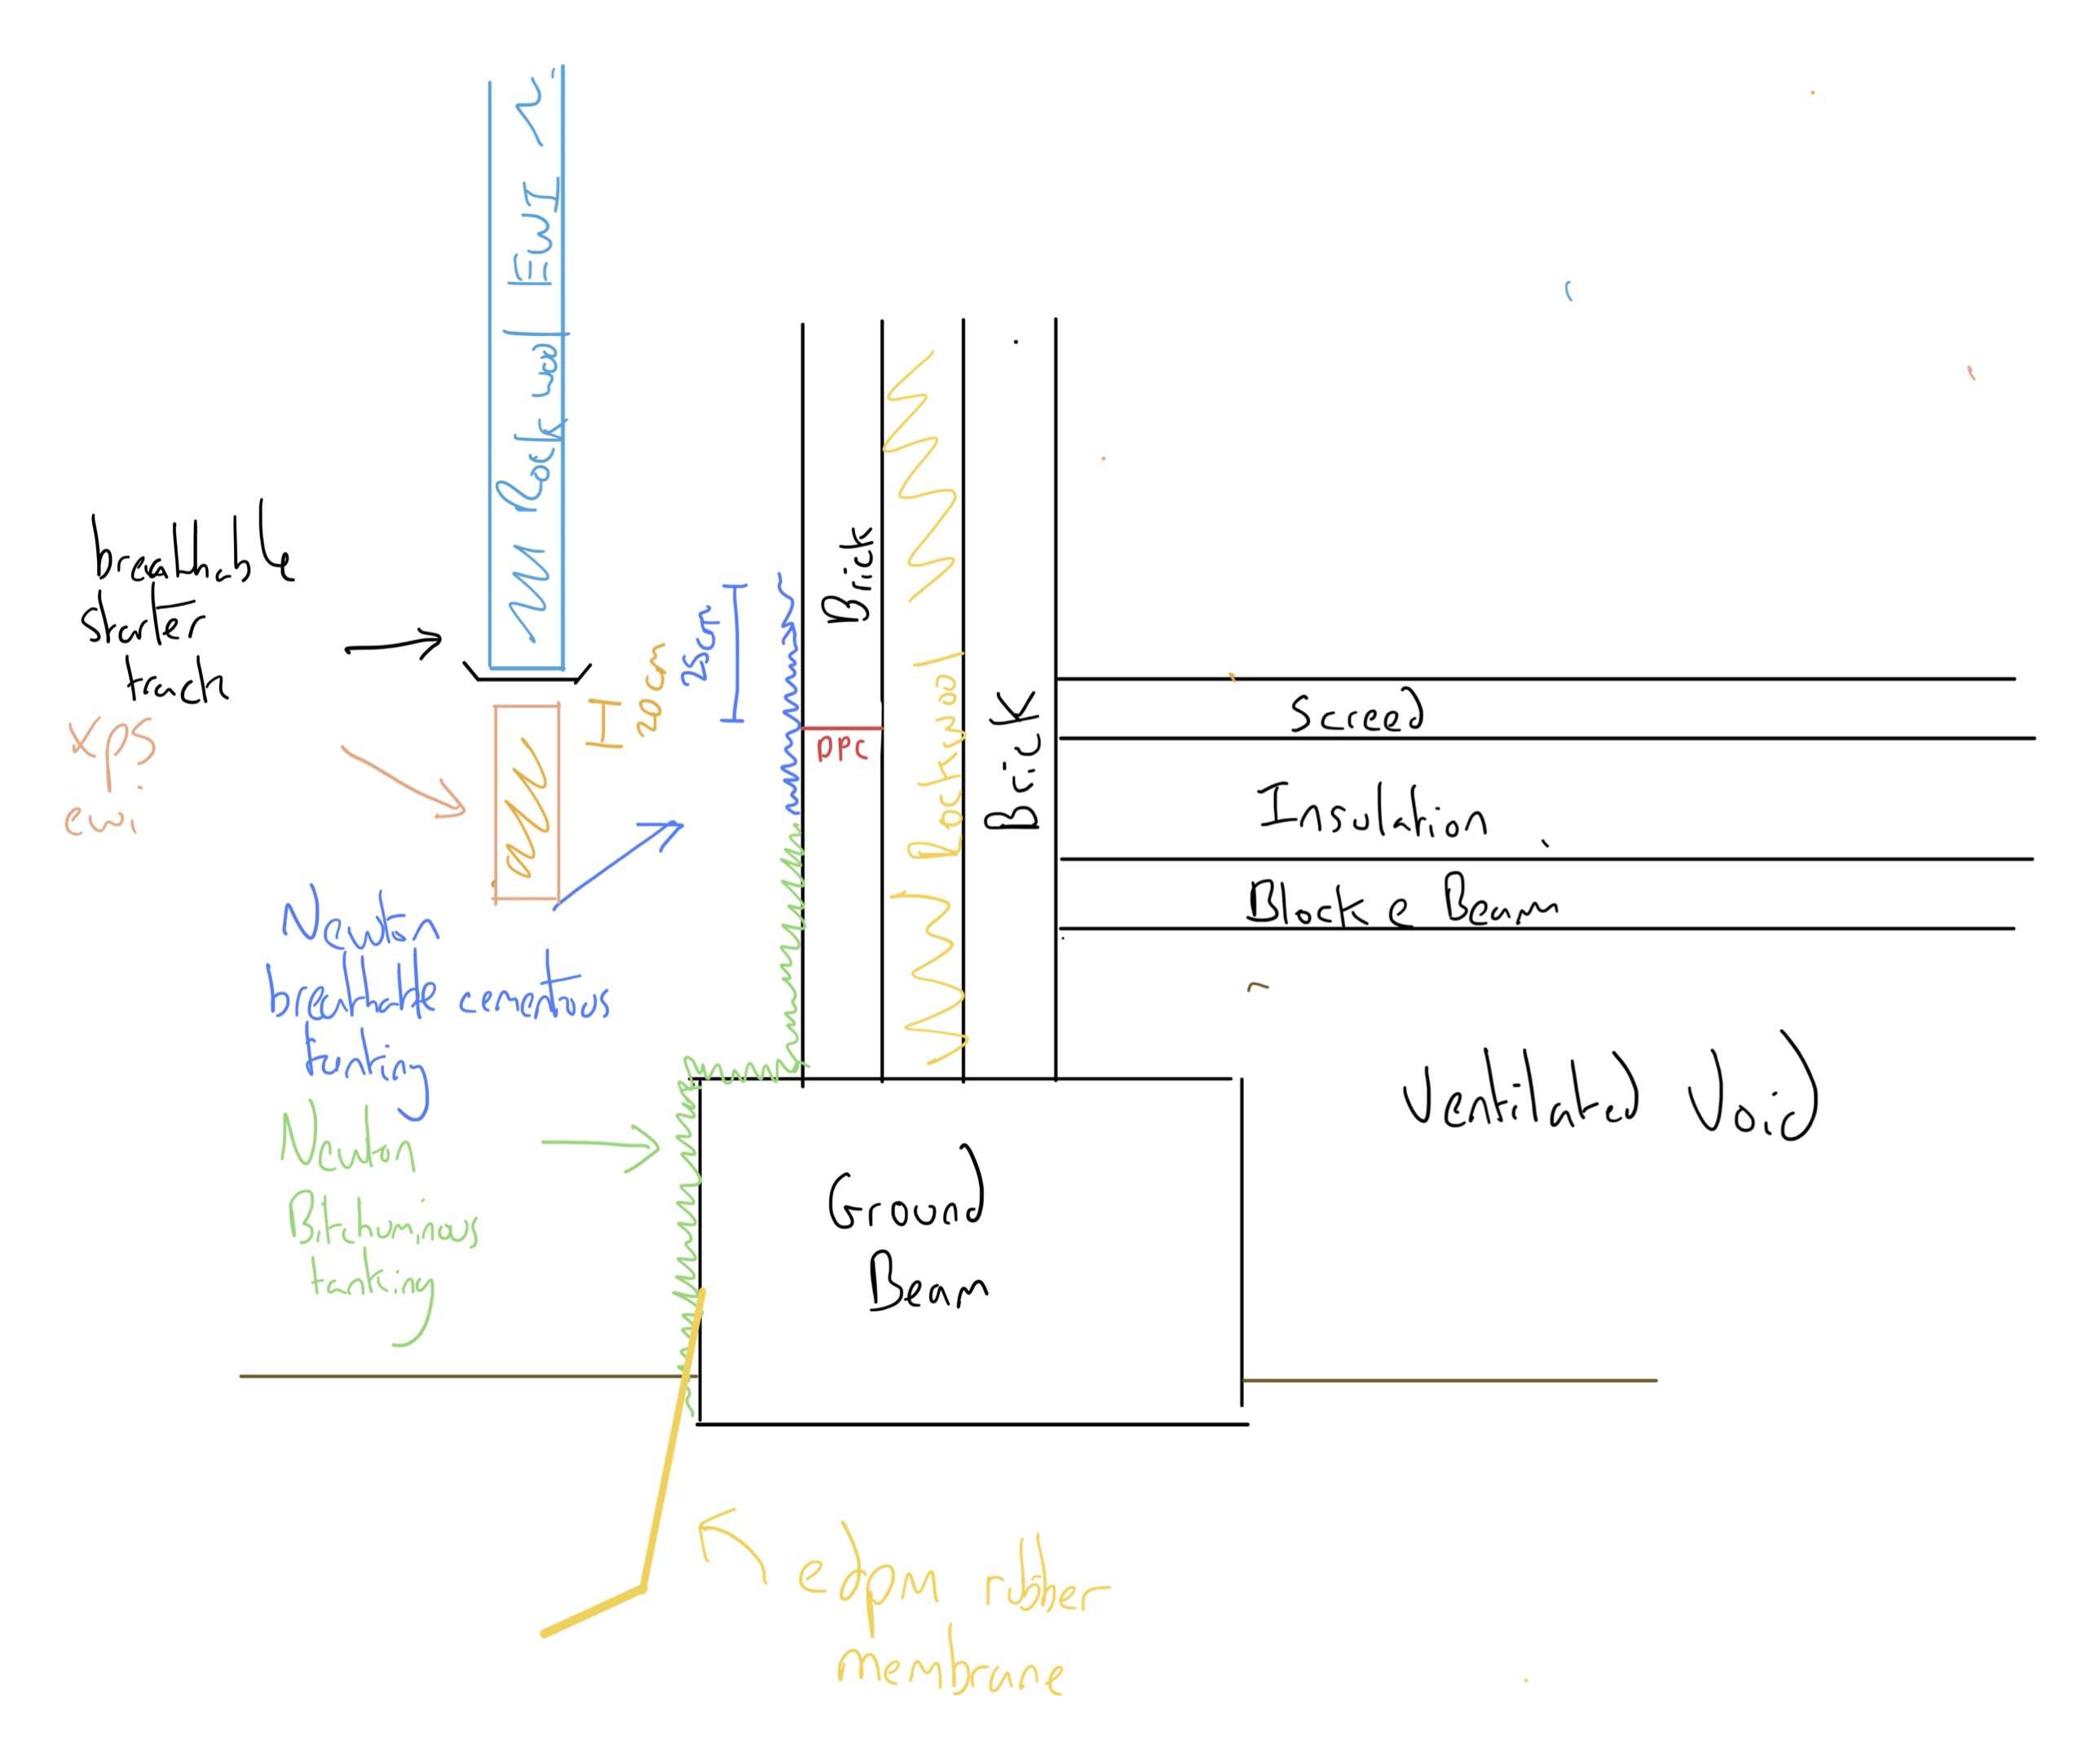 Rockwool EWI
breathable
starter
track
xps
ewi
20cm
25cm
Brick
DPC
Rockwool
Brick
Screed
Insulation
Block e Beam
Newton
breathable cementous
tanking
Newton
Bitchuminous
tanking
Ground
Beam
Ventilated Void
edpm rubber
membrane